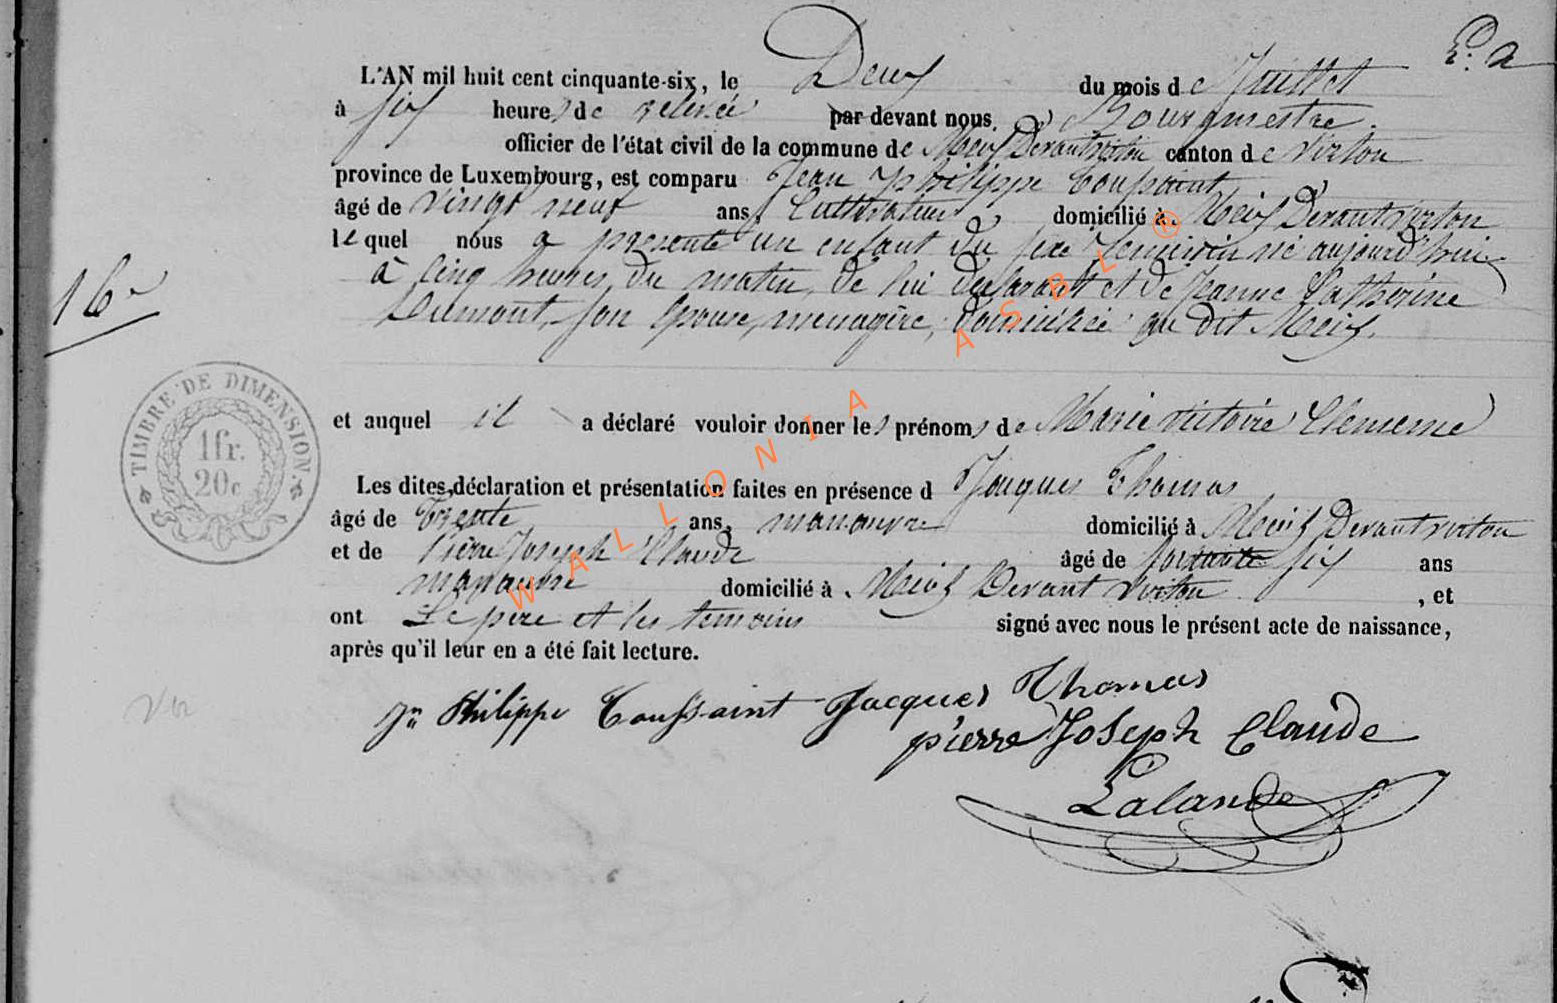 L'AN mil huit cent cinquante-six, le Deux du mois de Juillet
à six heures de relevée par devant nous Bourgmestre
officier de l'état civil de la commune de Meix Devant virton canton de virton
province de Luxembourg, est comparu Jean philippe Toussaint
âgé de vingt neuf ans, Cultivateur domicilié à Meix Devant virton
lequel nous a présenté un enfant du sexe feminin né aujourd'hui
à cinq heures du matin, de lui déclarant et de Jeanne Catherine
Dumont, son épouse, menagère, domiciliée au dit Meix.
16
TIMBRE DE DIMENSION.
1fr.
20c
et auquel il a déclaré vouloir donner les prénoms de Marie victoire Clemence
Les dites déclaration et présentation faites en présence d Jacques Thomas
âgé de Trente ans, manouvre domicilié à Meix Devant virton
et de Pierre Joseph Claude âgé de soixante six ans
manouvre domicilié à Meix Devant virton , et
ont Le père et les temoins signé avec nous le présent acte de naissance,
après qu'il leur en a été fait lecture.
Jn Philippe Toussaint Jacques Thomas
pierre Joseph Claude
Lalande
WALLONIA ASBL ®